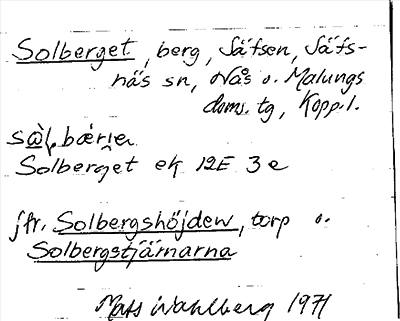 Solberget, berg, Säfsen, Säfs-
näs sn, Nås o. Malungs
doms. tg, Kopp.l.
Solberget ek 12E 3e
jfr. Solbergshöjden, torp o.
Solbergstjärnarna
Mats Wahlberg 1971